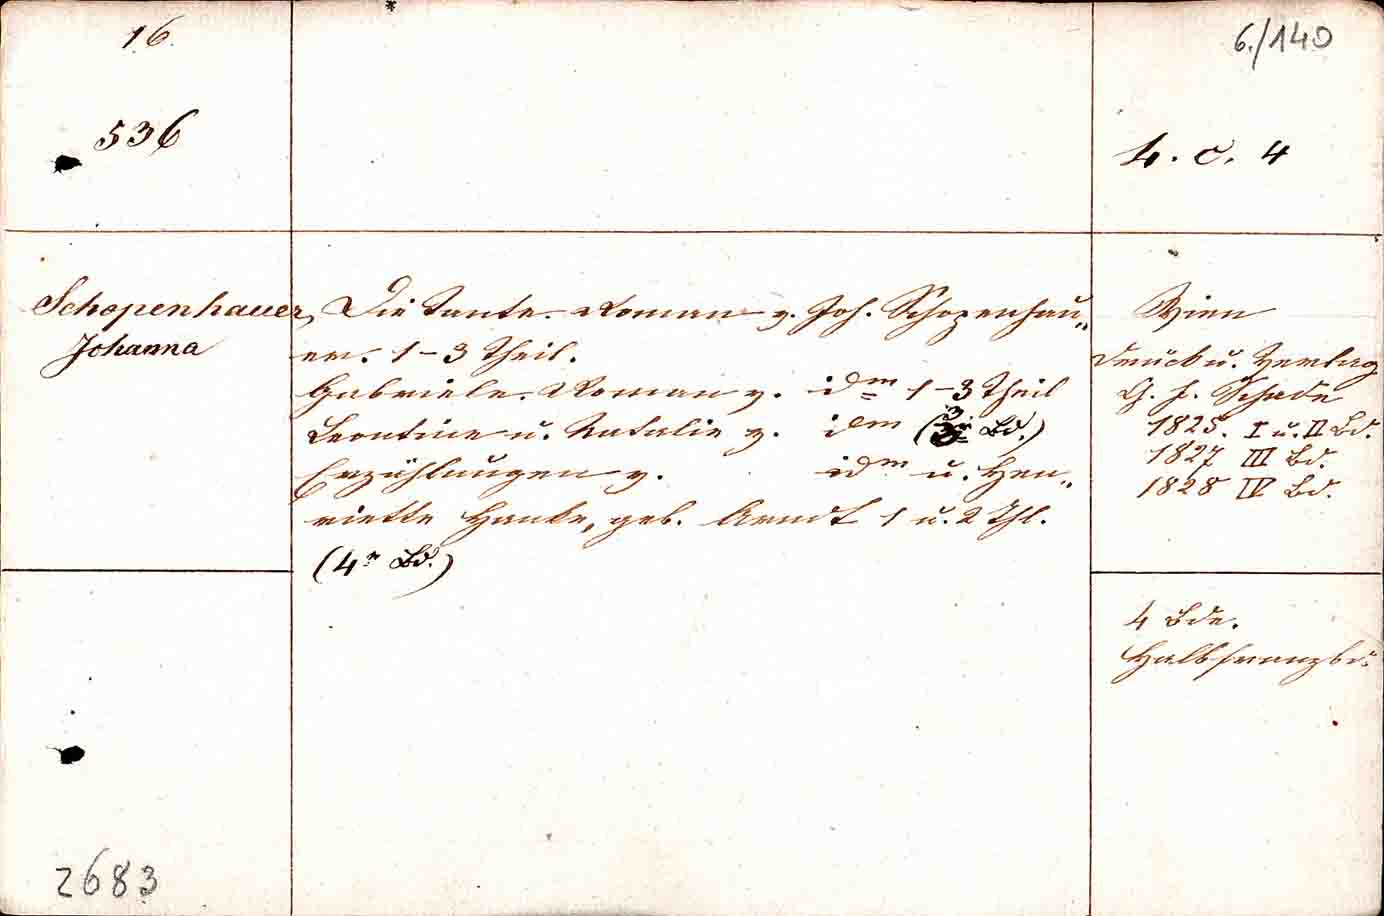 16
6./140
536
4. c. 4
Schopenhauer,
Johanna
Die Tante. Roman v. Joh. Schopenhau„
er. 1–3 Theil.
Gabriele. Roman v. idm 1–3 Theil
Leontine u. Natalie v. idm (3r Bd.)
Erzählungen v. idm u. Hen„
riette Hanke, geb. Arndt 1 u. 2 Thl.
(4r Bd.)
Wien
Druck u. Verlag
Ch. F. Schade
1825. I u. II Bd.
1827 III Bd.
1828 IV Bd.
4 Bde.
Halbfranzbd.
2683